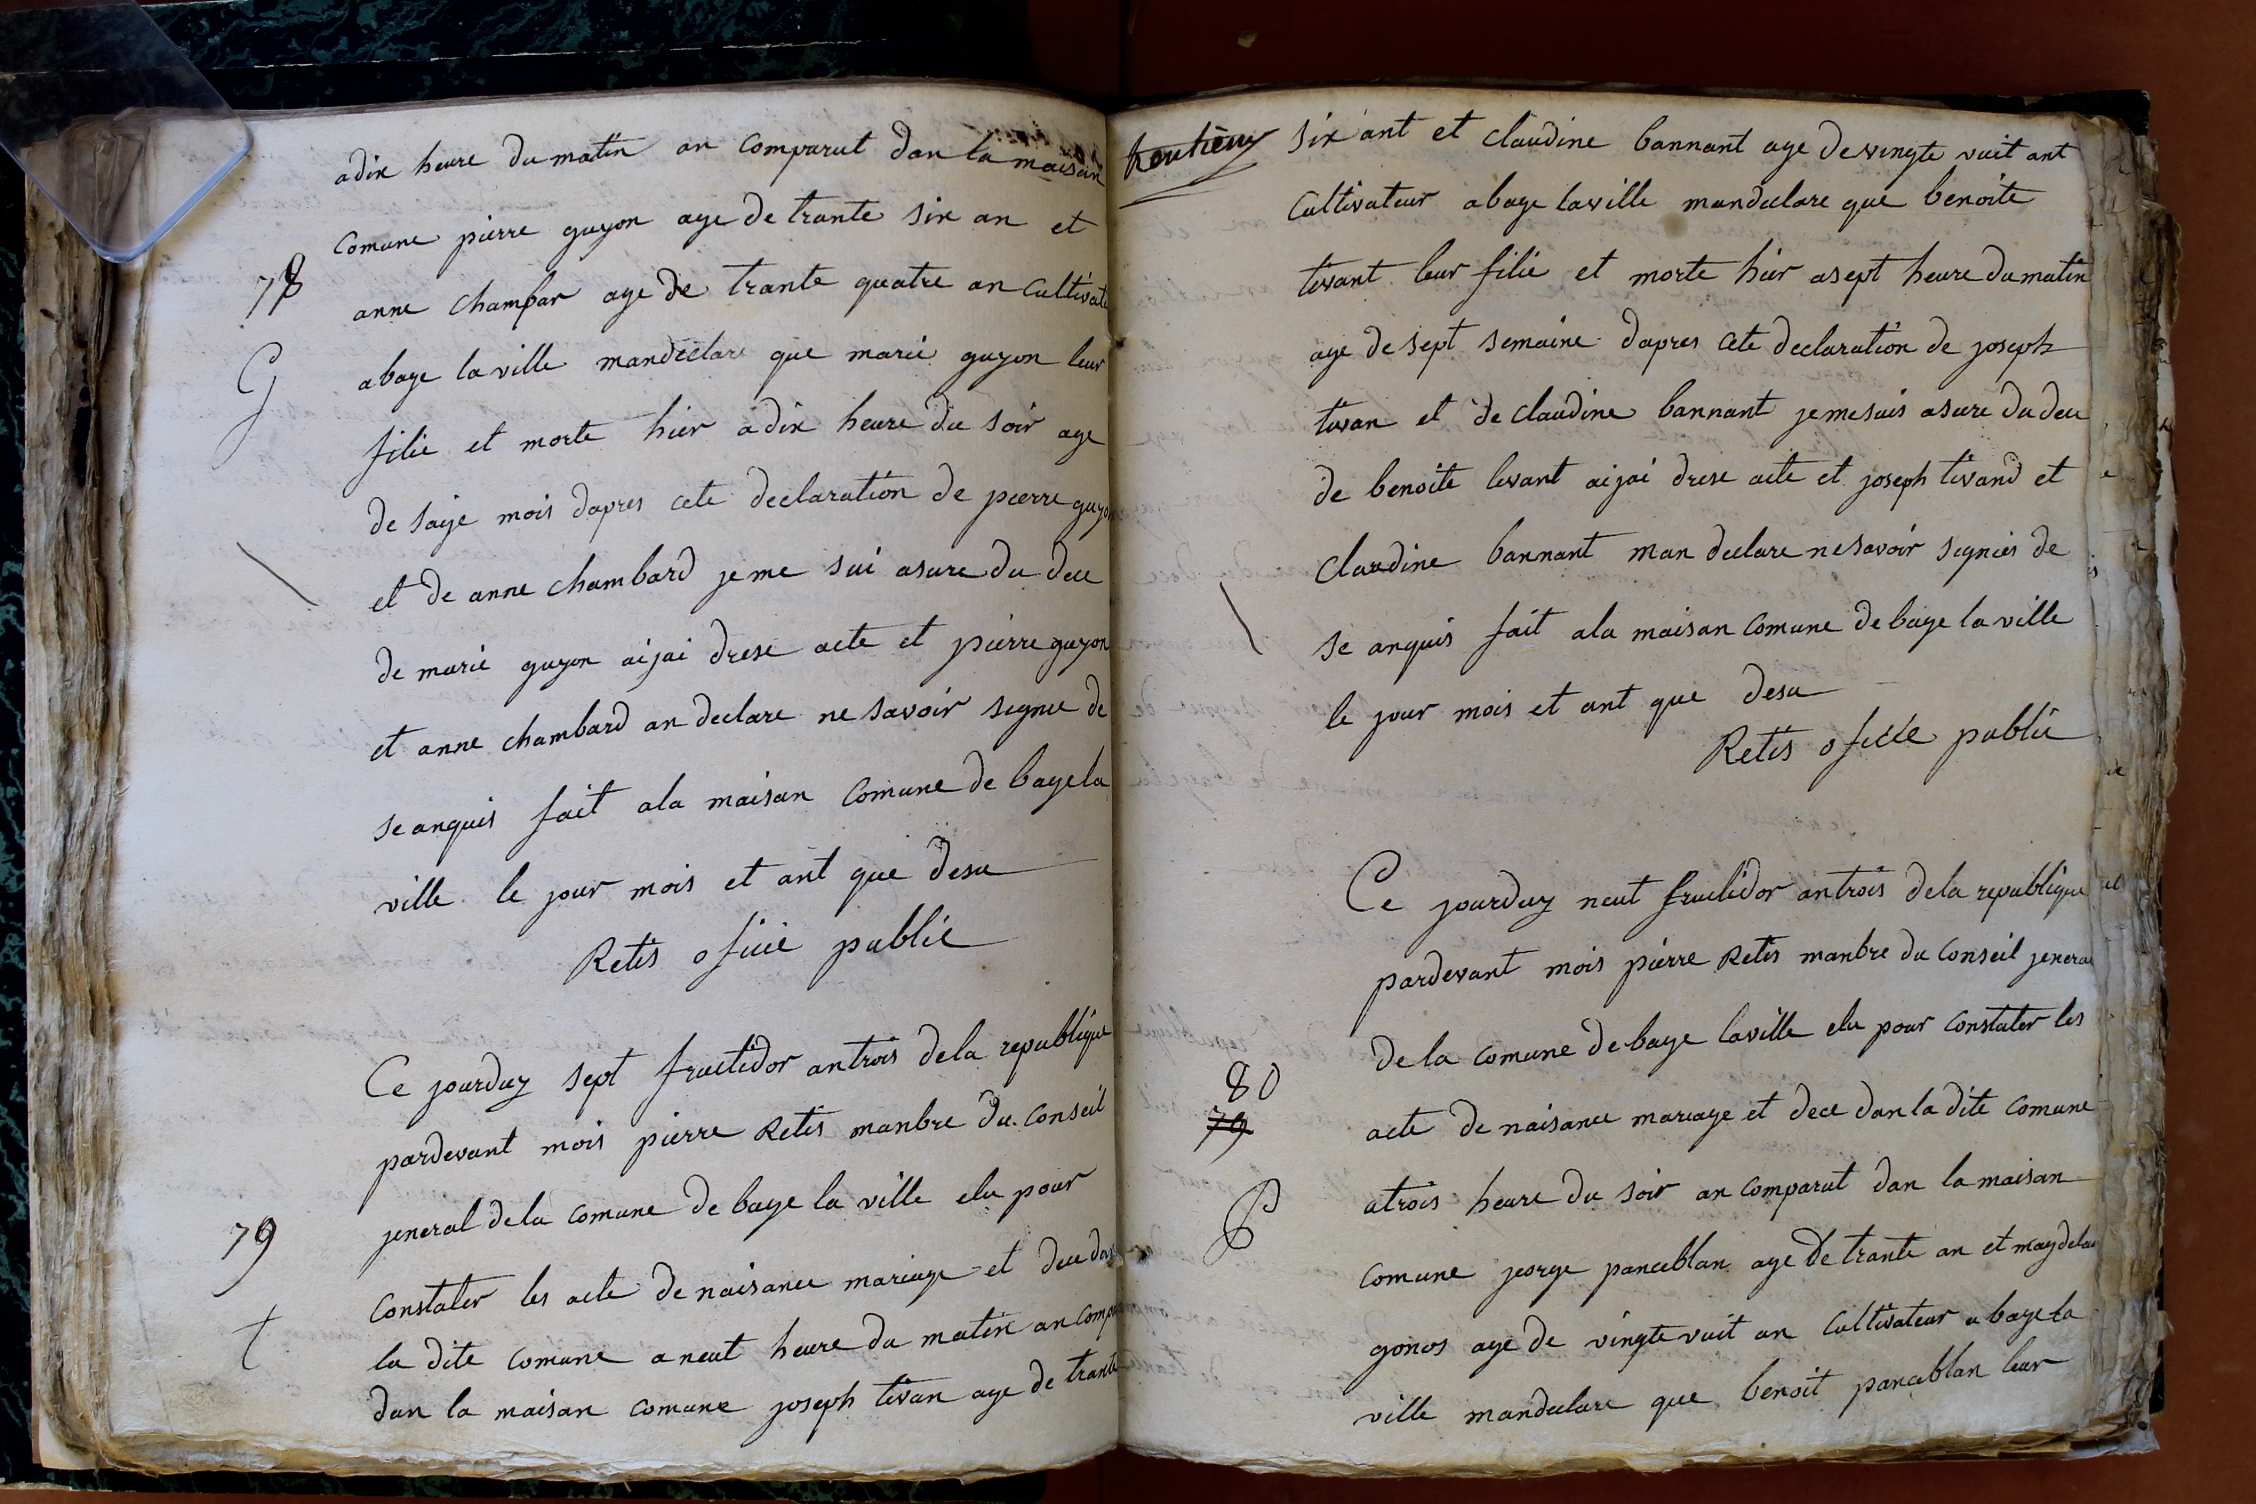 adix heure du matin an comparut dan la maisan
comune pierre guyon age de trante six an et
78
anne chambar age de trante quatre an cultivate
G
abage laville mandeclare que marie guyon leur
filie et morte hier adix heure du soir age
de saije mois dapres cete declaration de pierre guyon
et de anne chambard je me sui asure du dece
de marie guyon aijai drese acte et pierre guyon
et anne chambard an declare ne savoir signee de
se anquis fait ala maisan comune de bagela
ville le jour mois et ant que desu
Retis oficie public
Ce jourduy sept fructidor antrois dela republique
pardevant mois pierre Retis manbre du conseil
jeneral dela comune de bage la ville elu pour
79
constater les acte de naisance mariage et dece dan
t
la dite comune a neut heure du matin an compa
dan la maisan comune joseph tivan age de trante
six ant et claudine bannant age de vingte vuit ant
cultivateur abage laville mandeclare que benoite
tivant leur filie et morte hier asept heure du matin
age de sept semaine dapres cete declaration de joseph
tivan et de claudine bannant jemesuis asure du dece
de benoite tivant aijai drese acte et joseph tivand et
claudine bannant man declare nesavoir signees de
se anquis fait ala maisan comune de bage la ville
le jour mois et ant que desu
Retis oficie public
Ce jourduy neut fructidor antrois dela republique
pardevant mois pierre Retis manbre du conseil jeneral
de la comune de bage laville elu pour constater les
80
79
acte de naisance mariage et dece dan la dite comune
P
atrois heure du soir an comparut dan la maisan
comune jeorge panceblan age de trante an et maydelai
gonos age de vingte vuit an cultivateur a bage la
ville mandeclare que benoit panceblan leur